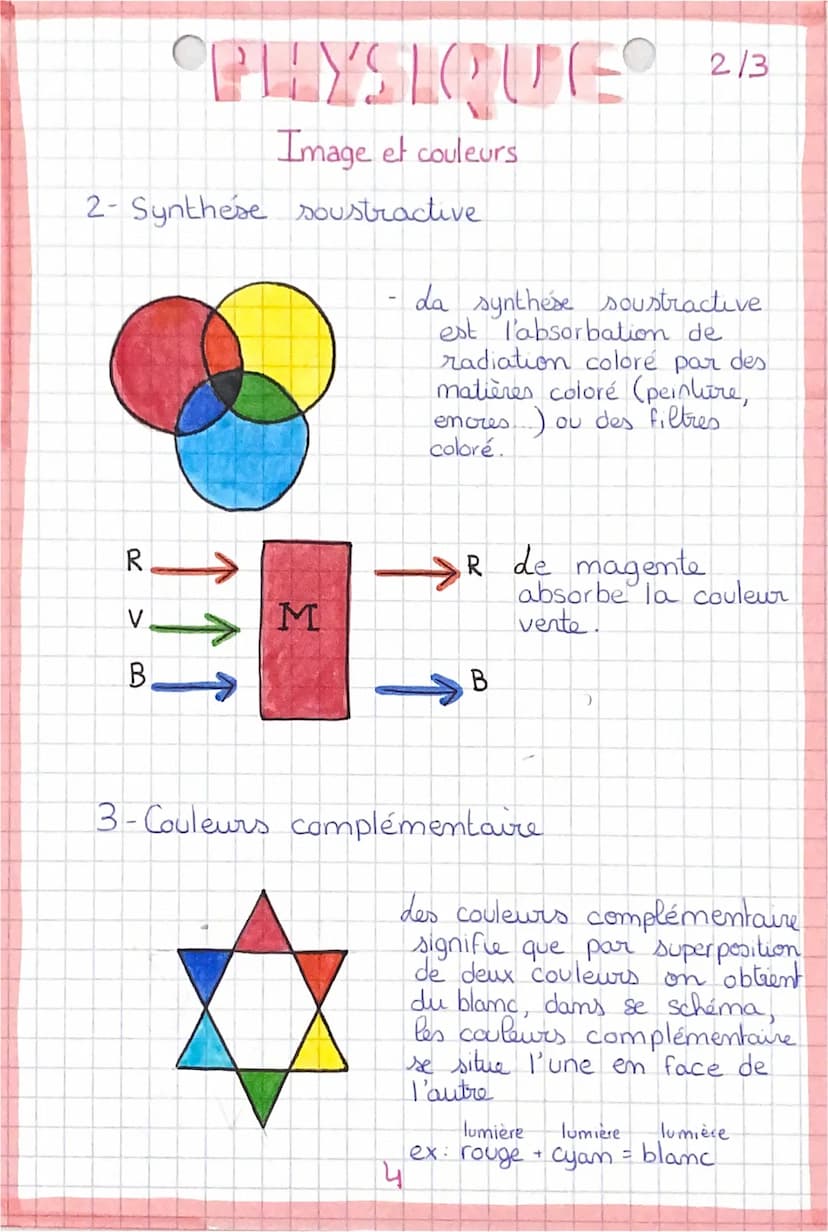 PHYSIQUE
2/3
Image et couleurs
2- Synthése soustractive
- La synthése soustractive
est l'absorbation de
radiation coloré par des
matières coloré (peinture,
encres...) ou des filtres
coloré.
R
V
B
M
R
B
Le magente
absorbe la couleur
verte.
3- Couleurs complémentaire
des couleurs complémentaire
signifie que par superposition
de deux couleurs on obtient
du blanc, dans se schéma,
les couleurs complémentaire
se situe l'une en face de
l'autre
lumière lumière lumière
ex: rouge + cyan = blanc
4